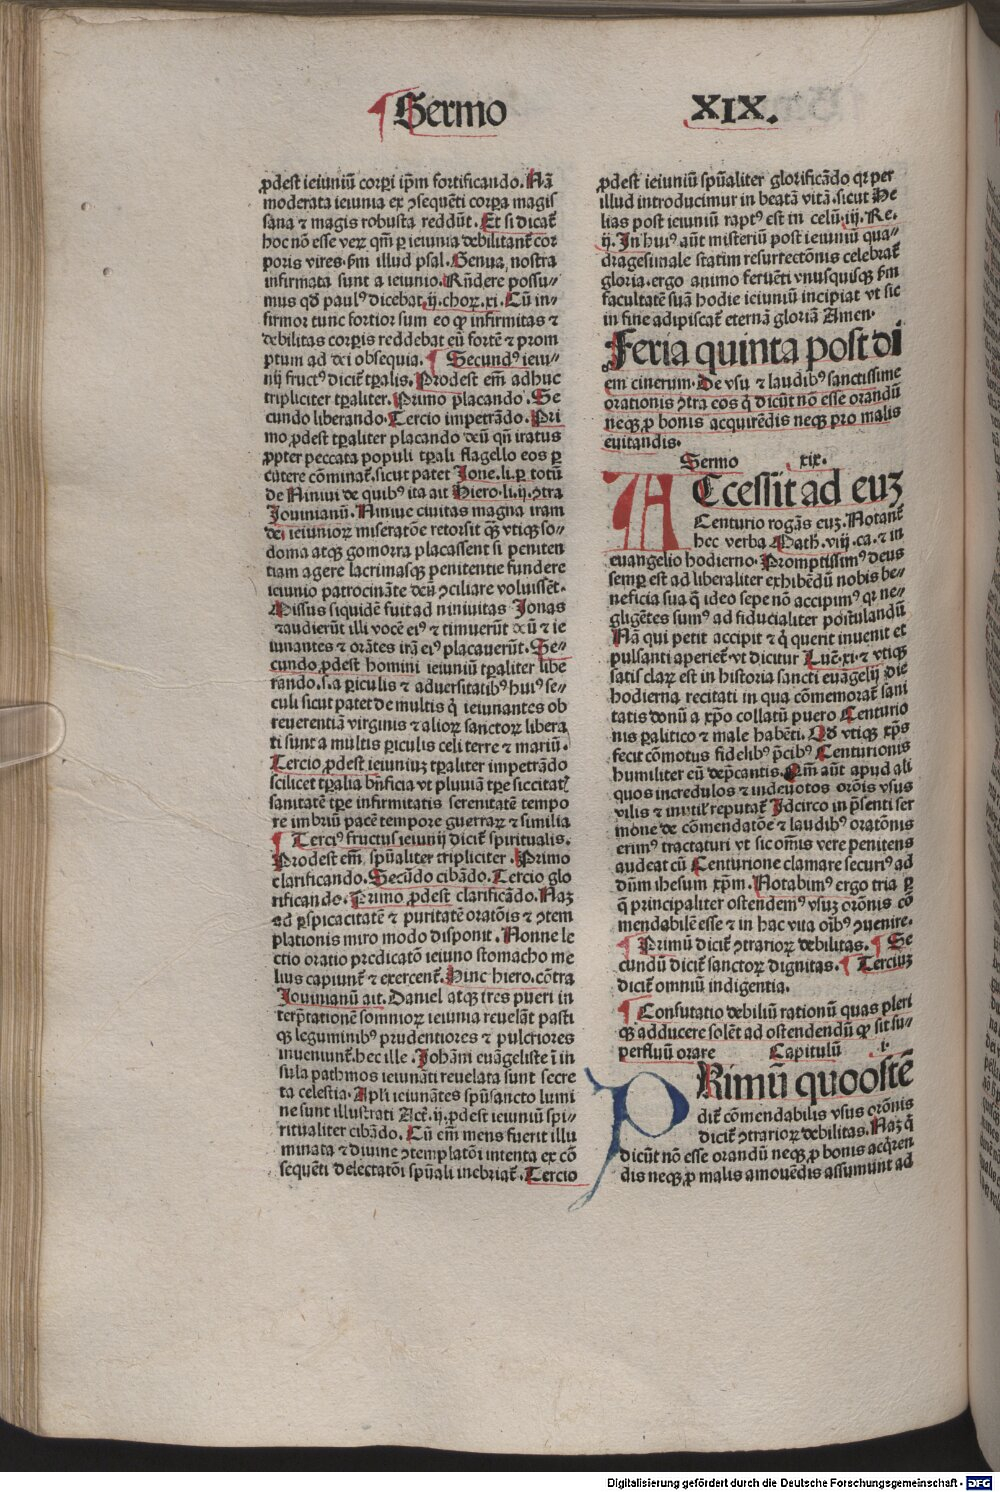 Sermo XIX.
ꝓdest ieiuniū corpī ip̄m fortificando. Nā
moderata ieiunia ex ꝯsequēti corꝑa magis
sana ⁊ magis robusta reddūt. Et si dicat̄
hoc nō esse veꝝ qm̄ ꝑ ieiunia debilitant̄ cor
poris vires. ẜm illud psal. Genua nostra
infirmata sunt a ieiunio. Rn̄dere possu-
mus qd̓ paulꝰ dicebat. ij. choꝝ. xi. Cū in-
firmor tunc fortior sum eo ꝙ infirmitas ⁊
debilitas corꝑis reddebat eū fortē ⁊ prom
ptum ad dei obsequia. ¶ Secundꝰ ieiu-
nij fructꝰ dicit̄ tꝑalis. Prodest em̄ adhuc
tripliciter tꝑaliter. Primo placando. Se
cundo liberando. Tercio impetrādo. Pri
mo ꝓdest tꝑaliter placando deū qn̄ iratus
ꝓpter peccata populi tꝑali flagello eos ꝑ
cutere cōminat̄. sicut patet Jone. li. ꝑ totū
de Niniui de quibꝰ ita ait Hiero. li. ij. ꝯtra
Jouinianū. Niniue ciuitas magna iram
dei ieiunioꝝ miseratōe retorsit qꝫ vtiqꝫ so-
doma atqꝫ gomorra placassent si peniten
tiam agere lacrimasqꝫ penitentie fundere
ieiunio patrocināte deū ꝯciliare voluissēt.
Missus siquidē fuit ad niniuitas Jonas
⁊ audierūt illi vocē eiꝰ ⁊ timuerūt deū ⁊ ie
iunantes ⁊ orātes irā eiꝰ placauerūt. Se-
cundo ꝓdest homini ieiuniū tꝑaliter libe
rando. s. a ꝑiculis ⁊ aduersitatibꝰ huiꝰ se-
culi sicut patet de multis q̄ ieiunantes ob
reuerentiā virginis ⁊ alioꝝ sanctoꝝ libera
ti sunt a multis ꝑiculis celi terre ⁊ mariū.
Tercio ꝓdest ieiuniuꝫ tꝑaliter impetrādo
scilicet tꝑalia bn̄ficia vt pluuiā tꝑe siccitat̄
sanitatē tꝑe infirmitatis serenitatē tempo
re imbriū pacē tempore guerraꝝ ⁊ similia
¶ Terciꝰ fructus ieiunij dicit̄ spiritualis.
Prodest em̄ spūaliter tripliciter. Primo
clarificando. Secūdo cibādo. Tercio glo
rificando. Primo ꝓdest clarificādo. Naꝫ
ad ꝑspicacitatē ⁊ puritatē oratōis ⁊ ꝯtem
plationis miro modo disponit. Nonne le
ctio oratio predicatō ieiuno stomacho me
lius capiunt̄ ⁊ exercent̄. Hinc hiero. cōtra
Jouinianū ait. Daniel atqꝫ tres pueri in
terp̄tationē somnioꝝ ieiunia reuelāt pasti
qꝫ leguminibꝰ prudentiores ⁊ pulcriores
inueniunt̄. hec ille. Johāni euāgeliste ī in
sula pathmos ieiunāti reuelata sunt secre
ta celestia. Apl̓i ieiunātes spūsancto lumi
ne sunt illustrati Act̄. ij. ꝓdest ieiuniū spi-
ritualiter cibādo. Cū em̄ mens fuerit illu
minata ⁊ diuine ꝯtemplatōi intenta ex cō
sequēti delectatōi spūali inebriat̄. Tercio
ꝓdest ieiuniū spūaliter glorificādo qꝛ per
illud introducimur in beatā vitā. sicut He
lias post ieiuniū raptꝰ est in celū. iij. Re.
ij. In huiꝰ aūt misteriū post ieiuniū qua-
dragesimale statim resurrectōnis celebrat̄
gloria. ergo animo feruēti vnusquisqꝫ ẜm
facultatē suā hodie ieiuniū incipiat vt sic
in fine adipiscat̄ eternā gloriā Amen.
Feria quinta post di
em cinerum. De vsu ⁊ laudibꝰ sanctissime
orationis ꝯtra eos q̄ dicūt nō esse orandū
neqꝫ ꝓ bonis acquirēdis neqꝫ pro malis
euitandis.
Sermo xix.
ACcessit ad euꝫ
Centurio rogās euꝫ. Notant̄
hec verba Math. viij. ca. ⁊ in
euangelio hodierno. Promptissimꝰ deus
semꝑ est ad liberaliter exhibēdū nobis be-
neficia sua q̄ ideo sepe nō accipimꝰ qꝛ ne-
gligētes sumꝰ ad fiducialiter postulandū
Nā qui petit accipit ⁊ q̄ querit inuenit et
pulsanti aperiet̄. vt dicitur Luc̄. xi. ⁊ vtiqꝫ
satis claꝝ est in historia sancti euāgelij die
hodierna recitati in qua cōmemorat̄ sani
tatis donū a xp̄o collatū puero Centurio
nis ꝑalitico ⁊ male habēti. Qd̓ vtiqꝫ xp̄s
fecit cōmotus fidelibꝰ p̄cibꝰ Centurionis
humiliter eū dep̄cantis. Qm̄ aūt apud ali
quos incredulos ⁊ indeuotos orōis vsus
vilis ⁊ inutil̓ reputat̄ Idcirco in p̄senti ser
mone de cōmendatōe ⁊ laudibꝰ oratōnis
erimꝰ tractaturi vt sic om̄is vere penitens
audeat cū Centurione clamare securiꝰ ad
dūm ihesum xp̄m. Notabimꝰ ergo tria ꝑ
q̄ principaliter ostendemꝰ vsuꝫ orōnis cō
mendabilē esse ⁊ in hac vita oībꝰ ꝯuenire.
¶ Primū dicit̄ ꝯtrarioꝝ debilitas. ¶ Se
cundū dicit̄ sanctoꝝ dignitas. ¶ Terciuꝫ
dicit̄ omniū indigentia.
¶ Consutatio debiliū rationū quas pleri
qꝫ adducere solēt ad ostendendū ꝙ sit su-
perfluū orare Capitulū i.
PRimū quo ostē
dit̄ cōmendabilis vsus orōnis
dicit̄ ꝯtrarioꝝ debilitas. Naꝫ q̄
dicūt nō esse orandū neqꝫ ꝓ bonis acq̄ren
dis neqꝫ ꝓ malis amouēdis assumunt ad
Digitalisierung gefördert durch die Deutsche Forschungsgemeinschaft - DFG